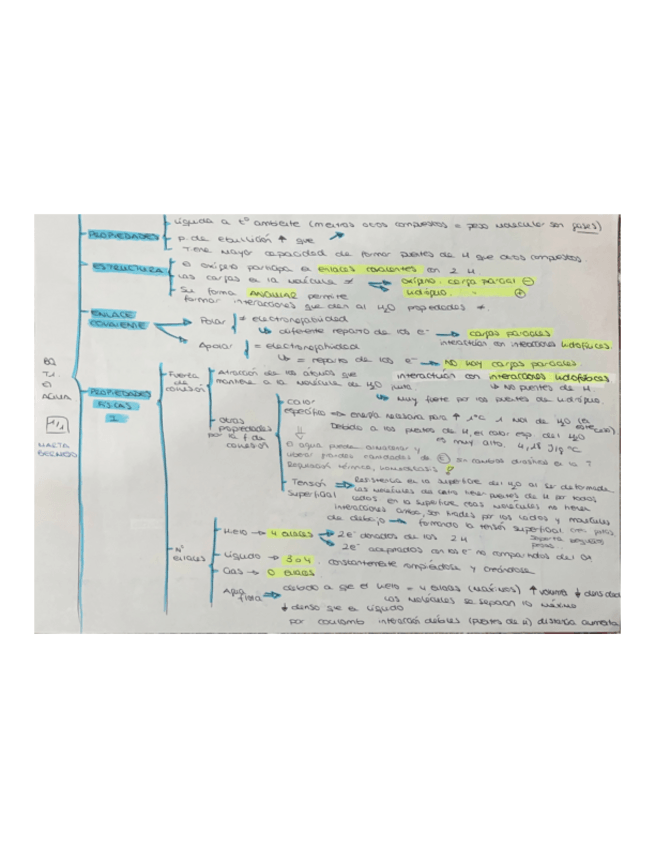 Líquida a tº ambiente (mientras otros compuestos = peso molecular son gases)
PROPIEDADES
P. de ebullición ↑ que
Tiene mayor capacidad de formar puentes de H que otros compuestos
ESTRUCTURA
El oxígeno participa en enlaces covalentes con 2 H
Las cargas en la molécula ≠
oxígeno: carga parcial ⊖
hidrógeno: " " ⊕
Su forma ANGULAR permite
formar interacciones que den al H2O propiedades ≠.
ENLACE
COVALENTE
Polar ≠ electronegatividad
diferente reparto de los e- → cargas parciales
interactúan con interacciones hidrofílicas.
Apolar = electronegatividad
= reparto de los e- → NO hay cargas parciales
interactúan con interacciones hidrofóbicas
No puentes de H.
B2
T.1
El
AGUA
1/1
MARTA
PROPIEDADES
FÍSICAS
1
Fuerza
de
cohesión
Atracción de los átomos que
mantiene a la molécula de H2O junta.
Muy fuerte por los puentes de hidróg.
Otras
propiedades
por la f. de
cohesión
Calor
específico ⇒ energía necesaria para ↑ 1ºC 1 mol de H2O
Debido a los puentes de H, el calor esp. del H2O
es muy alto. 4,18 J/g ºC
El agua puede almacenar y
liberar grandes cantidades de E sin cambios drásticos en la T
Regulación térmica, homeostasis
Tensión
superficial
⇒ Resistencia en la superficie del H2O al ser deformada
Las moléculas del centro tienen puentes de H por todos
lados, en la superficie esas moléculas no tienen
interacciones arriba, son tiradas por los lados y moléculas
de debajo → formando la tensión superficial
Nº
enlaces
Hielo → 4 enlaces
2e- donados de los 2 H
2e- aceptados con los e- no compartidos del O
Líquido → 3 o 4. constantemente rompiéndose y creándose.
Gas → 0 enlaces
Agua
fría
⇒ debido a que el hielo = 4 enlaces (máximos) ↑ volumen ↓ densidad
Las moléculas se separan lo máximo
↓ denso que el líquido
por coulomb interacción débiles (puentes de H) distancia aumenta